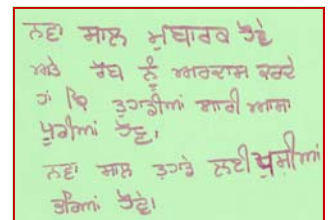 ਨਵਾਂ ਸਾਲ ਮੁਬਾਰਕ ਹੋਵੇ
ਅਤੇ ਰੱਬ ਨੂੰ ਅਰਦਾਸ ਕਰਦੇ
ਹਾਂ ਕਿ ਤੁਹਾਡੀਆਂ ਸਾਰੀ ਆਸਾ
ਪੂਰੀਆਂ ਹੋਣ।
ਨਵਾਂ ਸਾਲ ਤੁਹਾਡੇ ਲਈ ਖੁਸ਼ੀਆਂ
ਭਰਿਆ ਹੋਵੇ।